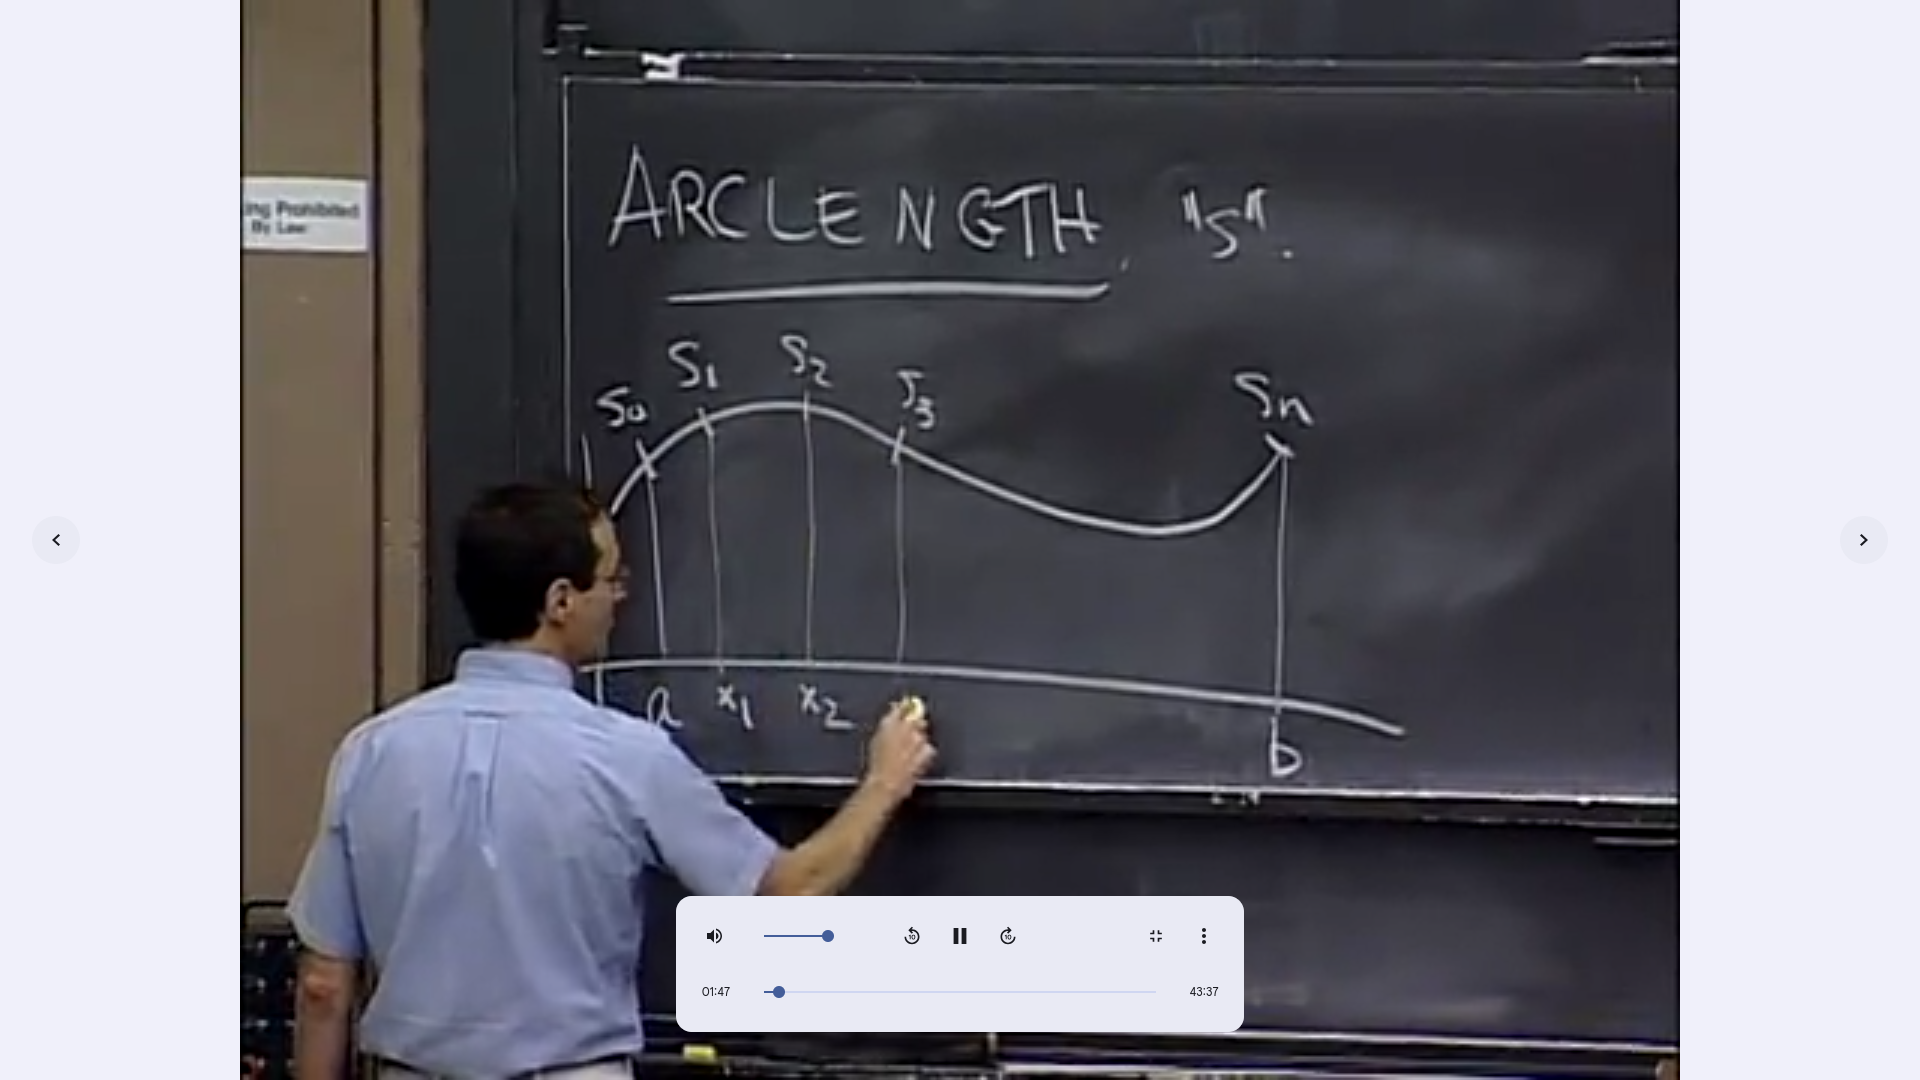 ing Prohibited
By Law
ARCLENGTH, "S".
S0 S1 S2 S3 Sn
a x1 x2 b
01:47 43:37